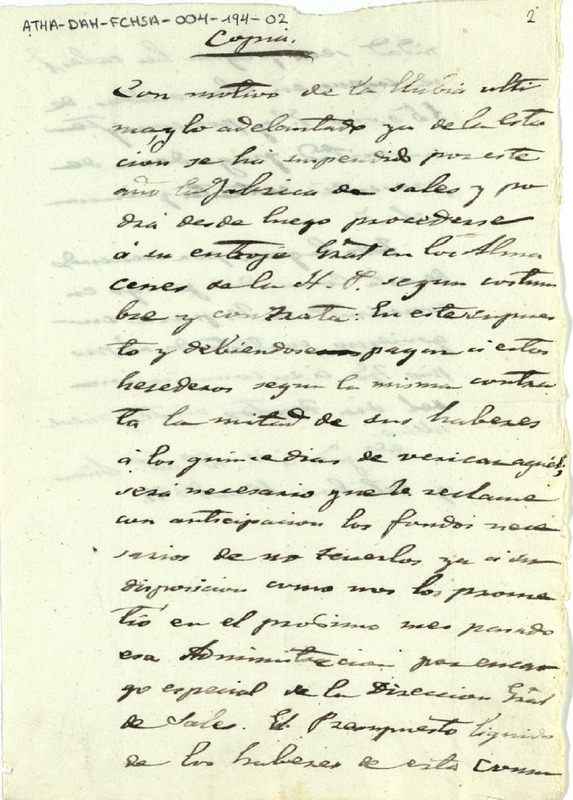 ATHA-DAH-FCHSA-004-194-02
2
Copia.
Con motivo de la llubia ulti
ma y lo adelantado ya de la esta
cion se ha suspendido por este
año la Fabrica de sales y po
dra desde luego procederse
á su entroje Gral en los Alma
cenes de la H. P. segun costum
bre y contrata. En este supues
to y debiendose pagar á estos
herederos segun la misma contra
ta la mitad de sus haberes
á los quince dias de verificar aquel,
será necesario que se reclame
con anticipacion los fondos nece
sarios de no tenerlos ya á su
disposicion como nos los prome
tió en el prosimo mes pasado
esa Administracion por encar
go especial de la Direccion Gral
de Sales. El Presupuesto liquido
de los haberes de esta Comu